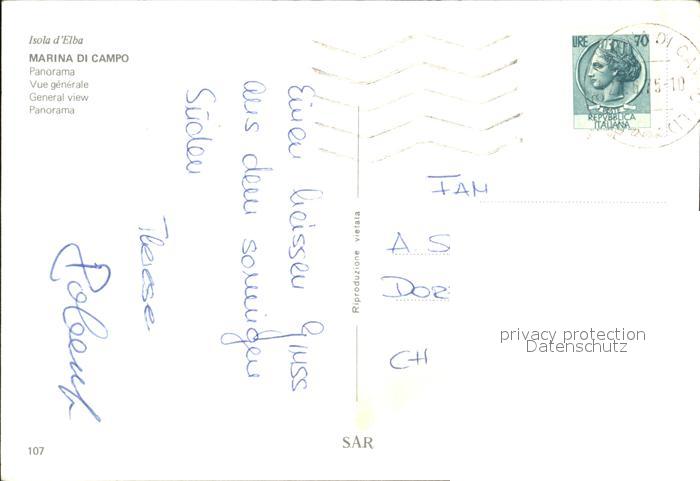 Isola d'Elba
MARINA DI CAMPO
Panorama
Vue générale
General view
Panorama
LIRE 70
POSTE
REPVBBLICA
ITALIANA
Einen heissen Gruss
aus dem sonnigen
Süden
Therese
Riproduzione vietata
FAM
A. S
DOR
CH
privacy protection
Datenschutz
107
SAR